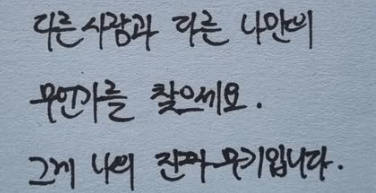 다른 사람과 다른 나만의
무언가를 찾으세요.
그게 나의 진짜 무기입니다.